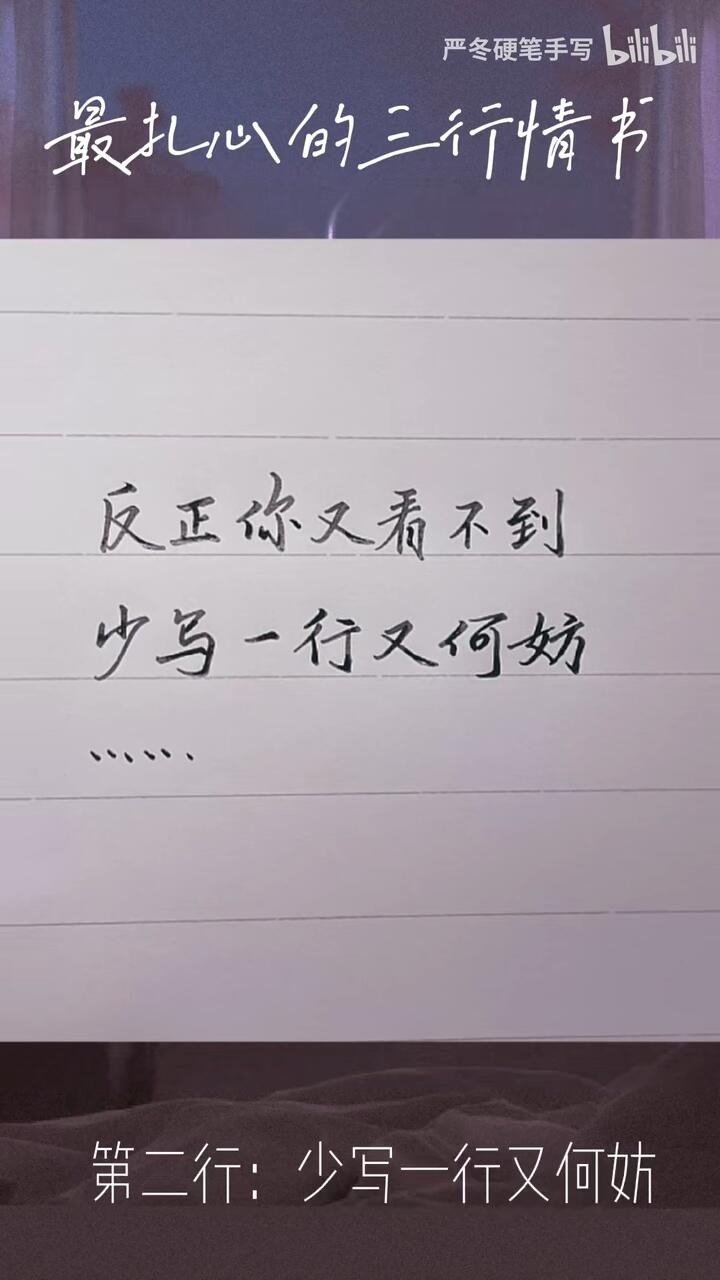 严冬硬笔手写 bilibili
最扎心的三行情书
反正你又看不到
少写一行又何妨
……
第二行：少写一行又何妨